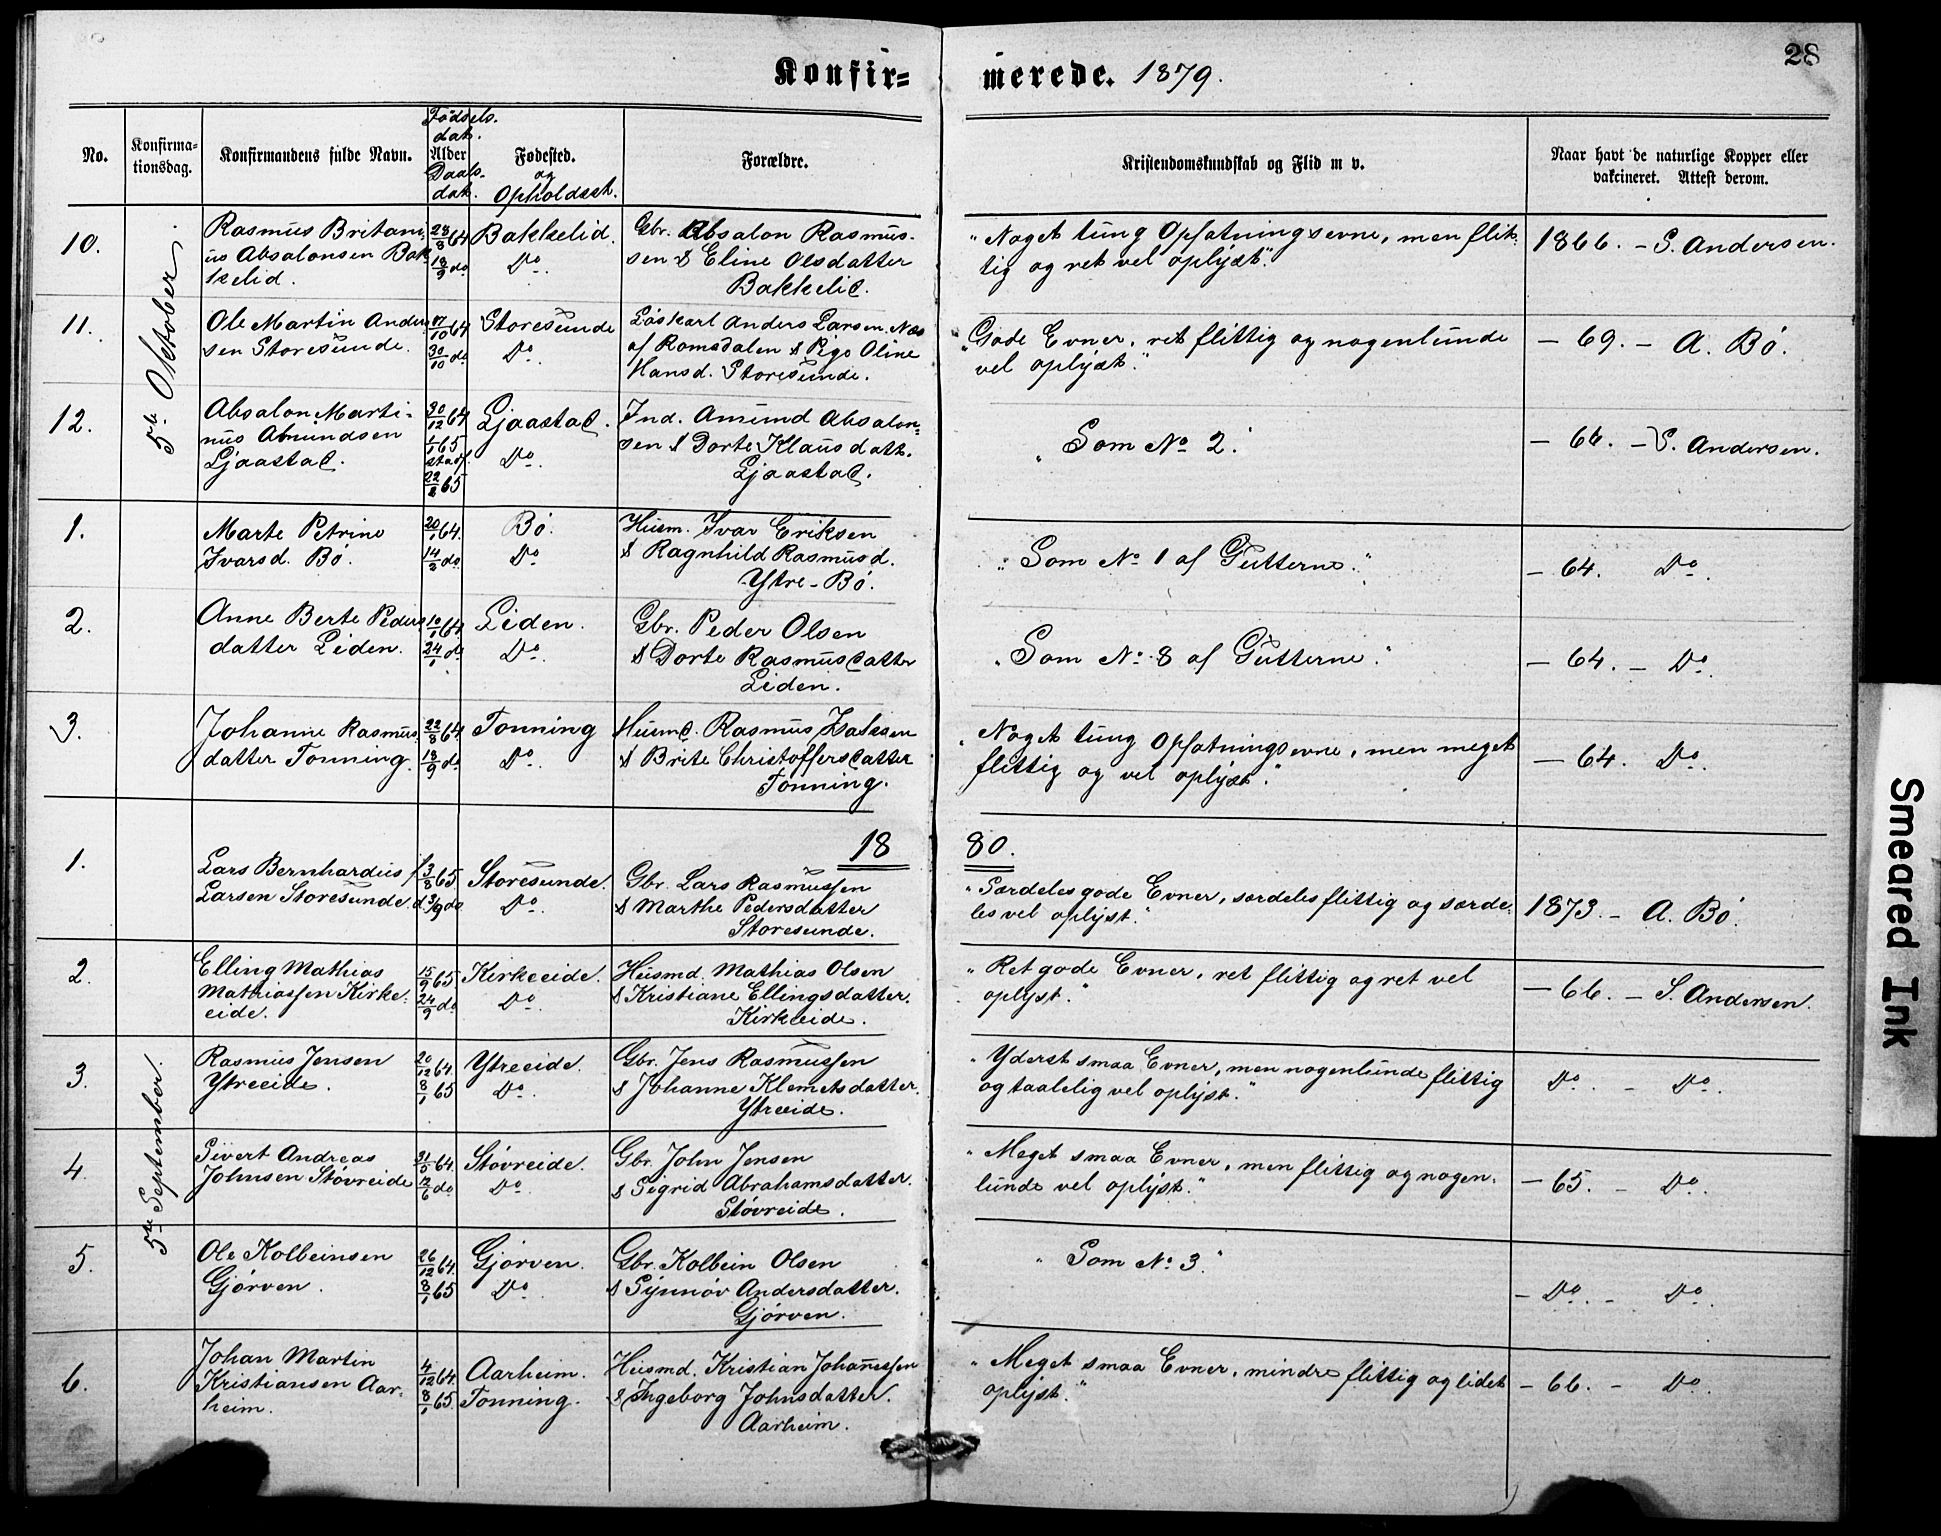 Konfir= merede. 1879.
28
No.
Konfirma=
tionsdag.
Konfirmandens fulde Navn.
Fødsels.
dat.
Alder
Daabs.
dat.
Fødested.
og
Opholdsst.
Forældre.
Kristendomskundskab og Flid m v.
Naar havt de naturlige Kopper eller
vakcineret. Attest derom.
5te October.
10.
Rasmus Britani-
us Absalonsen Bak-
kelid.
28/8 64
18/9 do
Bakkelid.
Do.
Gbr. Absalon Rasmus-
sen & Eline Olsdatter
Bakkelid.
"Noget tung Opfatningsevne, men flit-
tig og ret vel oplyst."
1866. – S. Andersen.
11.
Ole Martin Ander-
sen Storesunde.
17/10 64
30/10 do
Storesunde
Do.
Løskarl Anders Larsen Næs
af Romsdalen & Pige Oline
Hansd. Storesunde.
"Gode Evner, ret flittig og nogenlunde
vel oplyst."
– 69. – A. Bø.
12.
Absalon Marti-
nus Amundsen
Ljaastad.
30/12 64
1/1 65
stadf.
22/2 65
Ljaastad.
Do.
Ind. Amund Absalon-
sen & Dorte Klausdatt.
Ljaastad.
"Som No 2."
– 64. – S. Andersen.
1.
Marte Petrine
Ivarsd. Bø.
20/1 64.
14/2 do
Bø.
Do
Husm. Ivar Eriksen
& Ragnhild Rasmusd.
Ytre-Bø.
"Som No 1 af Gutterne."
– 64. Do.
2.
Anne Berte Peders-
datter Leden.
10/1 64
24/1 do
Leden.
Do.
Gbr. Peder Olsen
& Dorte Rasmusdatter
Leden.
"Som No 8 af Gutterne."
– 64. – Do.
3.
Johanne Rasmus-
datter Tonning.
22/8 64
18/9 do
Tonning
Do.
Husmd. Rasmus Isaksen
& Brite Christoffersdatter
Tonning.
"Noget tung Opfatningsevne, men meget
flittig og vel oplyst."
– 64. Do.
18 80.
5te September.
1.
Lars Bernhardus
Larsen Storesunde.
f 3/8 65
d. 3/9 do
Storesunde.
Do.
Gbr. Lars Rasmussen
& Marthe Pedersdatter
Storesunde.
"Særdeles gode Evner, særdeles flittig og særde-
les vel oplyst."
1873. – A. Bø.
2.
Elling Mathias
Mathiassen Kirke-
eide.
15/9 65
24/9 do
Kirkeeide.
Do.
Husmd. Mathias Olsen
& Kristiane Ellingsdatter.
Kirkeeide.
"Ret gode Evner, ret flittig og ret vel
oplyst."
– 66. – S. Andersen.
3.
Rasmus Jensen
Ytreeide.
20/12 64.
8/1 65
Ytreeide.
Do.
Gbr. Jens Rasmussen
& Johanne Klemetsdatter.
Ytreeide.
"Yderst smaa Evner, men nogenlunde flittig
og taalelig vel oplyst."
Do. – Do.
4.
Sivert Andreas
Johnsen Støvreide
31/5 64.
12/6 do
Støvreide.
Do.
Gbr. John Jensen
& Sigrid Abrahamsdatter.
Støvreide.
"Meget smaa Evner, men flittig og nogen-
lunde vel oplyst."
– 65. – Do.
5.
Ole Kolbeinsen
Gjørven.
26/12 64.
8/1 65
Gjørven.
Do.
Gbr. Kolbein Olsen
& Synnøv Andersdatter.
Gjørven.
"Som No 3."
– Do. – Do.
6.
Johan Martin
Kristiansen Aar-
heim.
4/12 64.
8/1 65
Aarheim.
Tonning.
Husmd. Kristian Johanessen
& Ingeborg Johnsdatter.
Aarheim.
"Meget smaa Evner, mindre flittig og lidet
oplyst."
– 66. – Do.
Smeared Ink